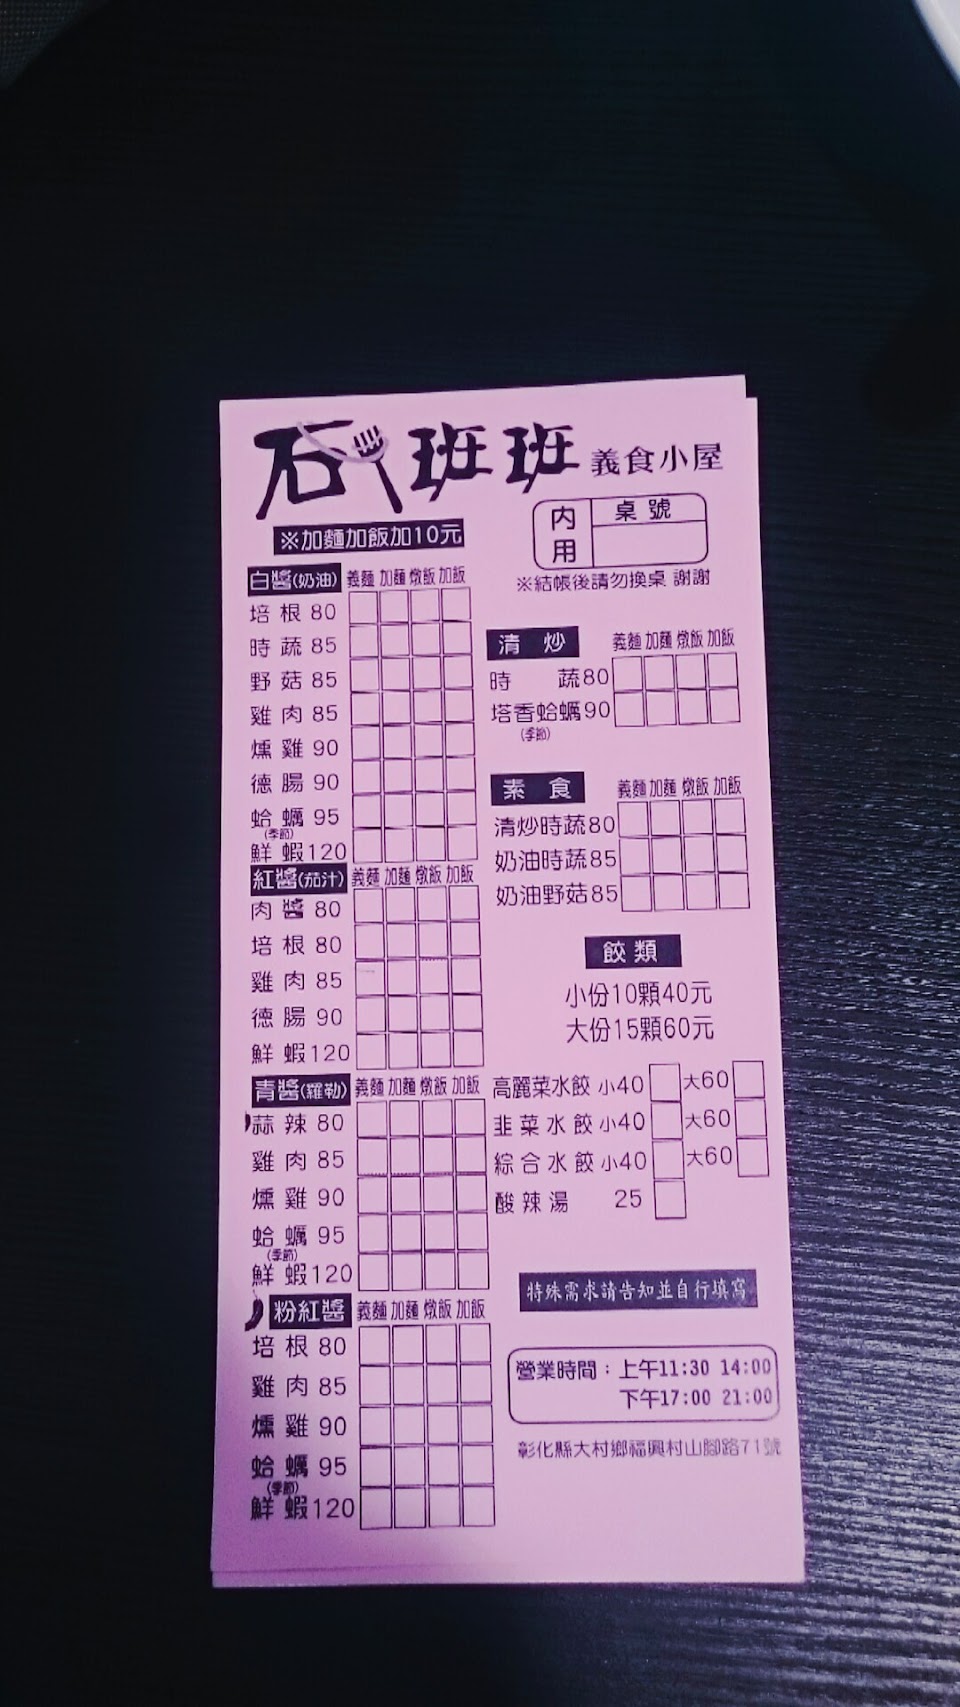 石班班 義食小屋
※加麵加飯加10元
內用 桌號
※結帳後請勿換桌 謝謝
白醬(奶油) 義麵 加麵 燉飯 加飯
培根 80
時蔬 85
野菇 85
雞肉 85
燻雞 90
德腸 90
蛤蠣 95
(季節)
鮮蝦 120
紅醬(茄汁) 義麵 加麵 燉飯 加飯
肉醬 80
培根 80
雞肉 85
德腸 90
鮮蝦 120
青醬(羅勒) 義麵 加麵 燉飯 加飯
蒜辣 80
雞肉 85
燻雞 90
蛤蠣 95
(季節)
鮮蝦 120
粉紅醬 義麵 加麵 燉飯 加飯
培根 80
雞肉 85
燻雞 90
蛤蠣 95
(季節)
鮮蝦 120
清炒 義麵 加麵 燉飯 加飯
時蔬 80
塔香蛤蠣 90
(季節)
素食 義麵 加麵 燉飯 加飯
清炒時蔬 80
奶油時蔬 85
奶油野菇 85
餃類
小份10顆40元
大份15顆60元
高麗菜水餃 小40 大60
韭菜水餃 小40 大60
綜合水餃 小40 大60
酸辣湯 25
特殊需求請告知並自行填寫
營業時間：上午11:30 14:00
下午17:00 21:00
彰化縣大村鄉福興村山腳路71號